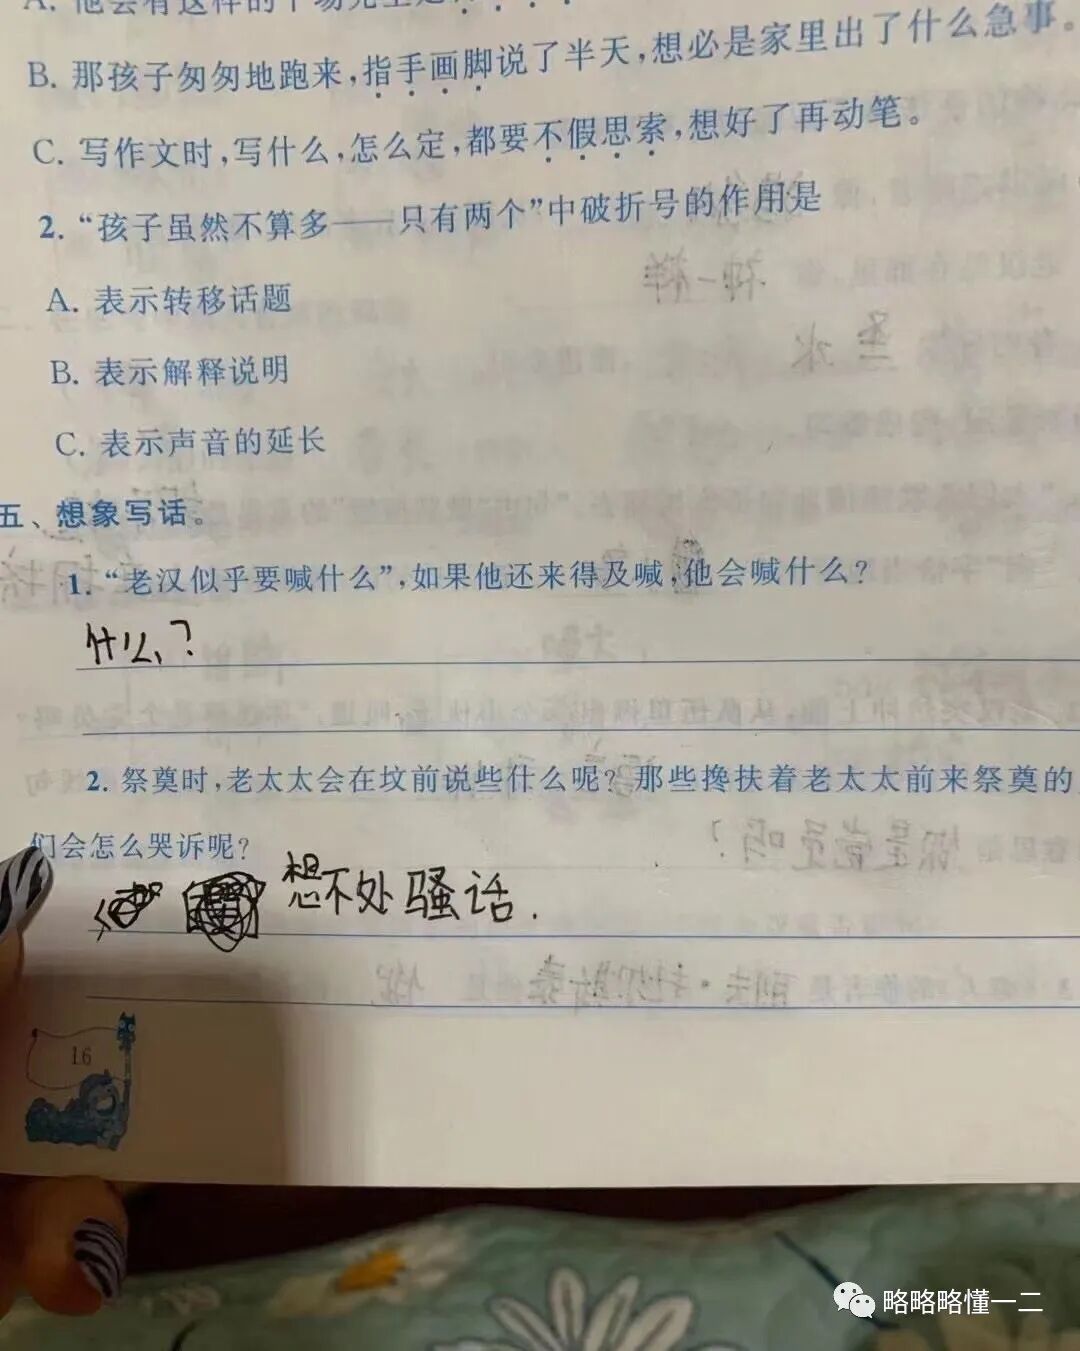 A. 他会有这样的个场完全是
B. 那孩子匆匆地跑来,指手画脚说了半天,想必是家里出了什么急事。
C. 写作文时,写什么,怎么定,都要不假思索,想好了再动笔。
2. “孩子虽然不算多——只有两个”中破折号的作用是
A. 表示转移话题
B. 表示解释说明
C. 表示声音的延长
五、想象写话。
1. “老汉似乎要喊什么”,如果他还来得及喊,他会喊什么?
什么?
2. 祭奠时,老太太会在坟前说些什么呢?那些搀扶着老太太前来祭奠的
们会怎么哭诉呢?
想不处骚话.
16
略略略懂一二